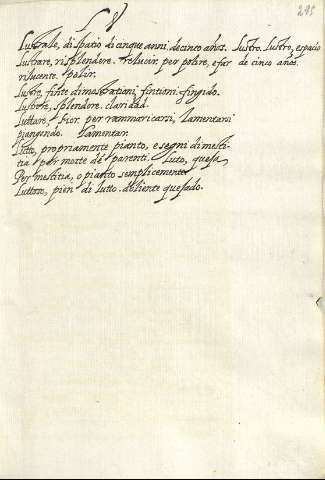 L V
295
Lustrale, di spatio di cinque anni. de cinco años. Lustro. Lustro, espacio
lustrare, risplendere. relucir. per polire, e far de cinco años.
rilucente. polir.
Lustro, finte dimostrationi, fintioni. fingido.
lustore, splendore. claridad.
luttare. fior. per rammaricarsi, lamentarsi
piangendo. lamentar.
lutto, propriamente pianto, e segni di mesti-
tia per morte de parenti. luto, quexa
Per mestitia, o pianto semplicemente
luttoso, pien di lutto. doliente quexado.